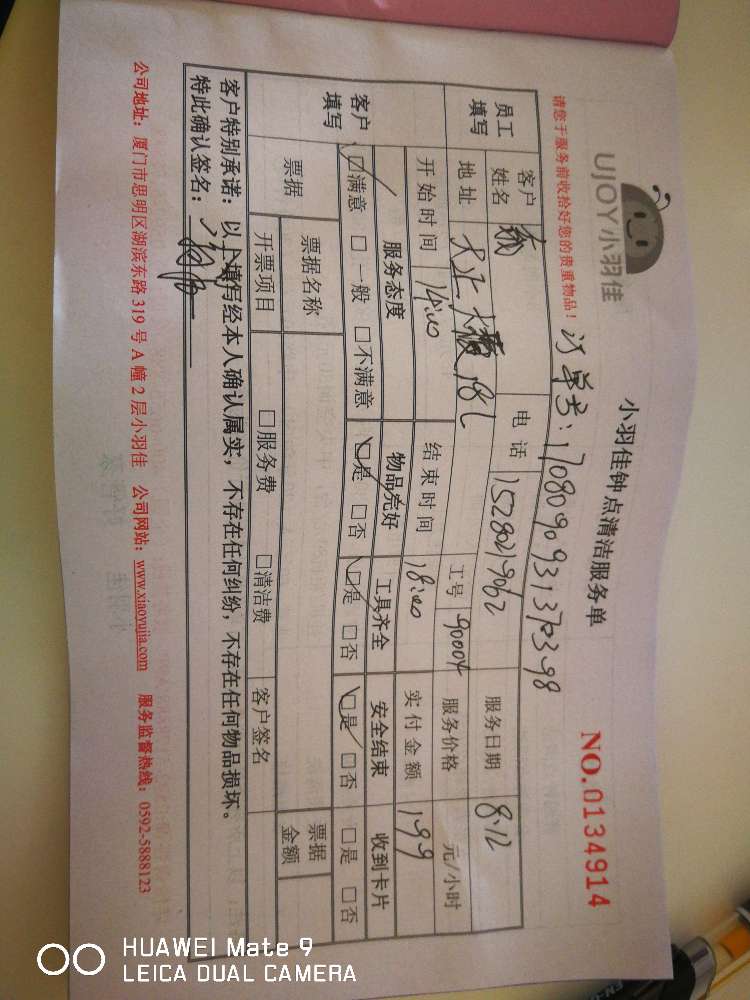 UJOY小羽佳
小羽佳钟点清洁服务单
NO.0134914
请您于服务前收拾好您的贵重物品!
订单号:1708090931370398
员工填写
客户姓名
电话
服务日期 8.12
地址 18L
工号 90004
服务价格 元/小时
开始时间 14:00
结束时间 18:00
实付金额 199
客户填写
服务态度 物品完好 工具齐全 安全结束 收到卡片
☑满意 □一般 □不满意 ☑是 □否 ☑是 □否 ☑是 □否 □是 □否
票据
票据名称
票据金额
开票项目 □服务费 □清洁费 客户签名
客户特别承诺:以上填写经本人确认属实,不存在任何纠纷,不存在任何物品损坏。
特此确认签名:
公司地址:厦门市思明区湖滨东路 319 号 A 幢 2 层小羽佳 公司网站:www.xiaoyujia.com 服务监督热线:0592-5888123
HUAWEI Mate 9
LEICA DUAL CAMERA